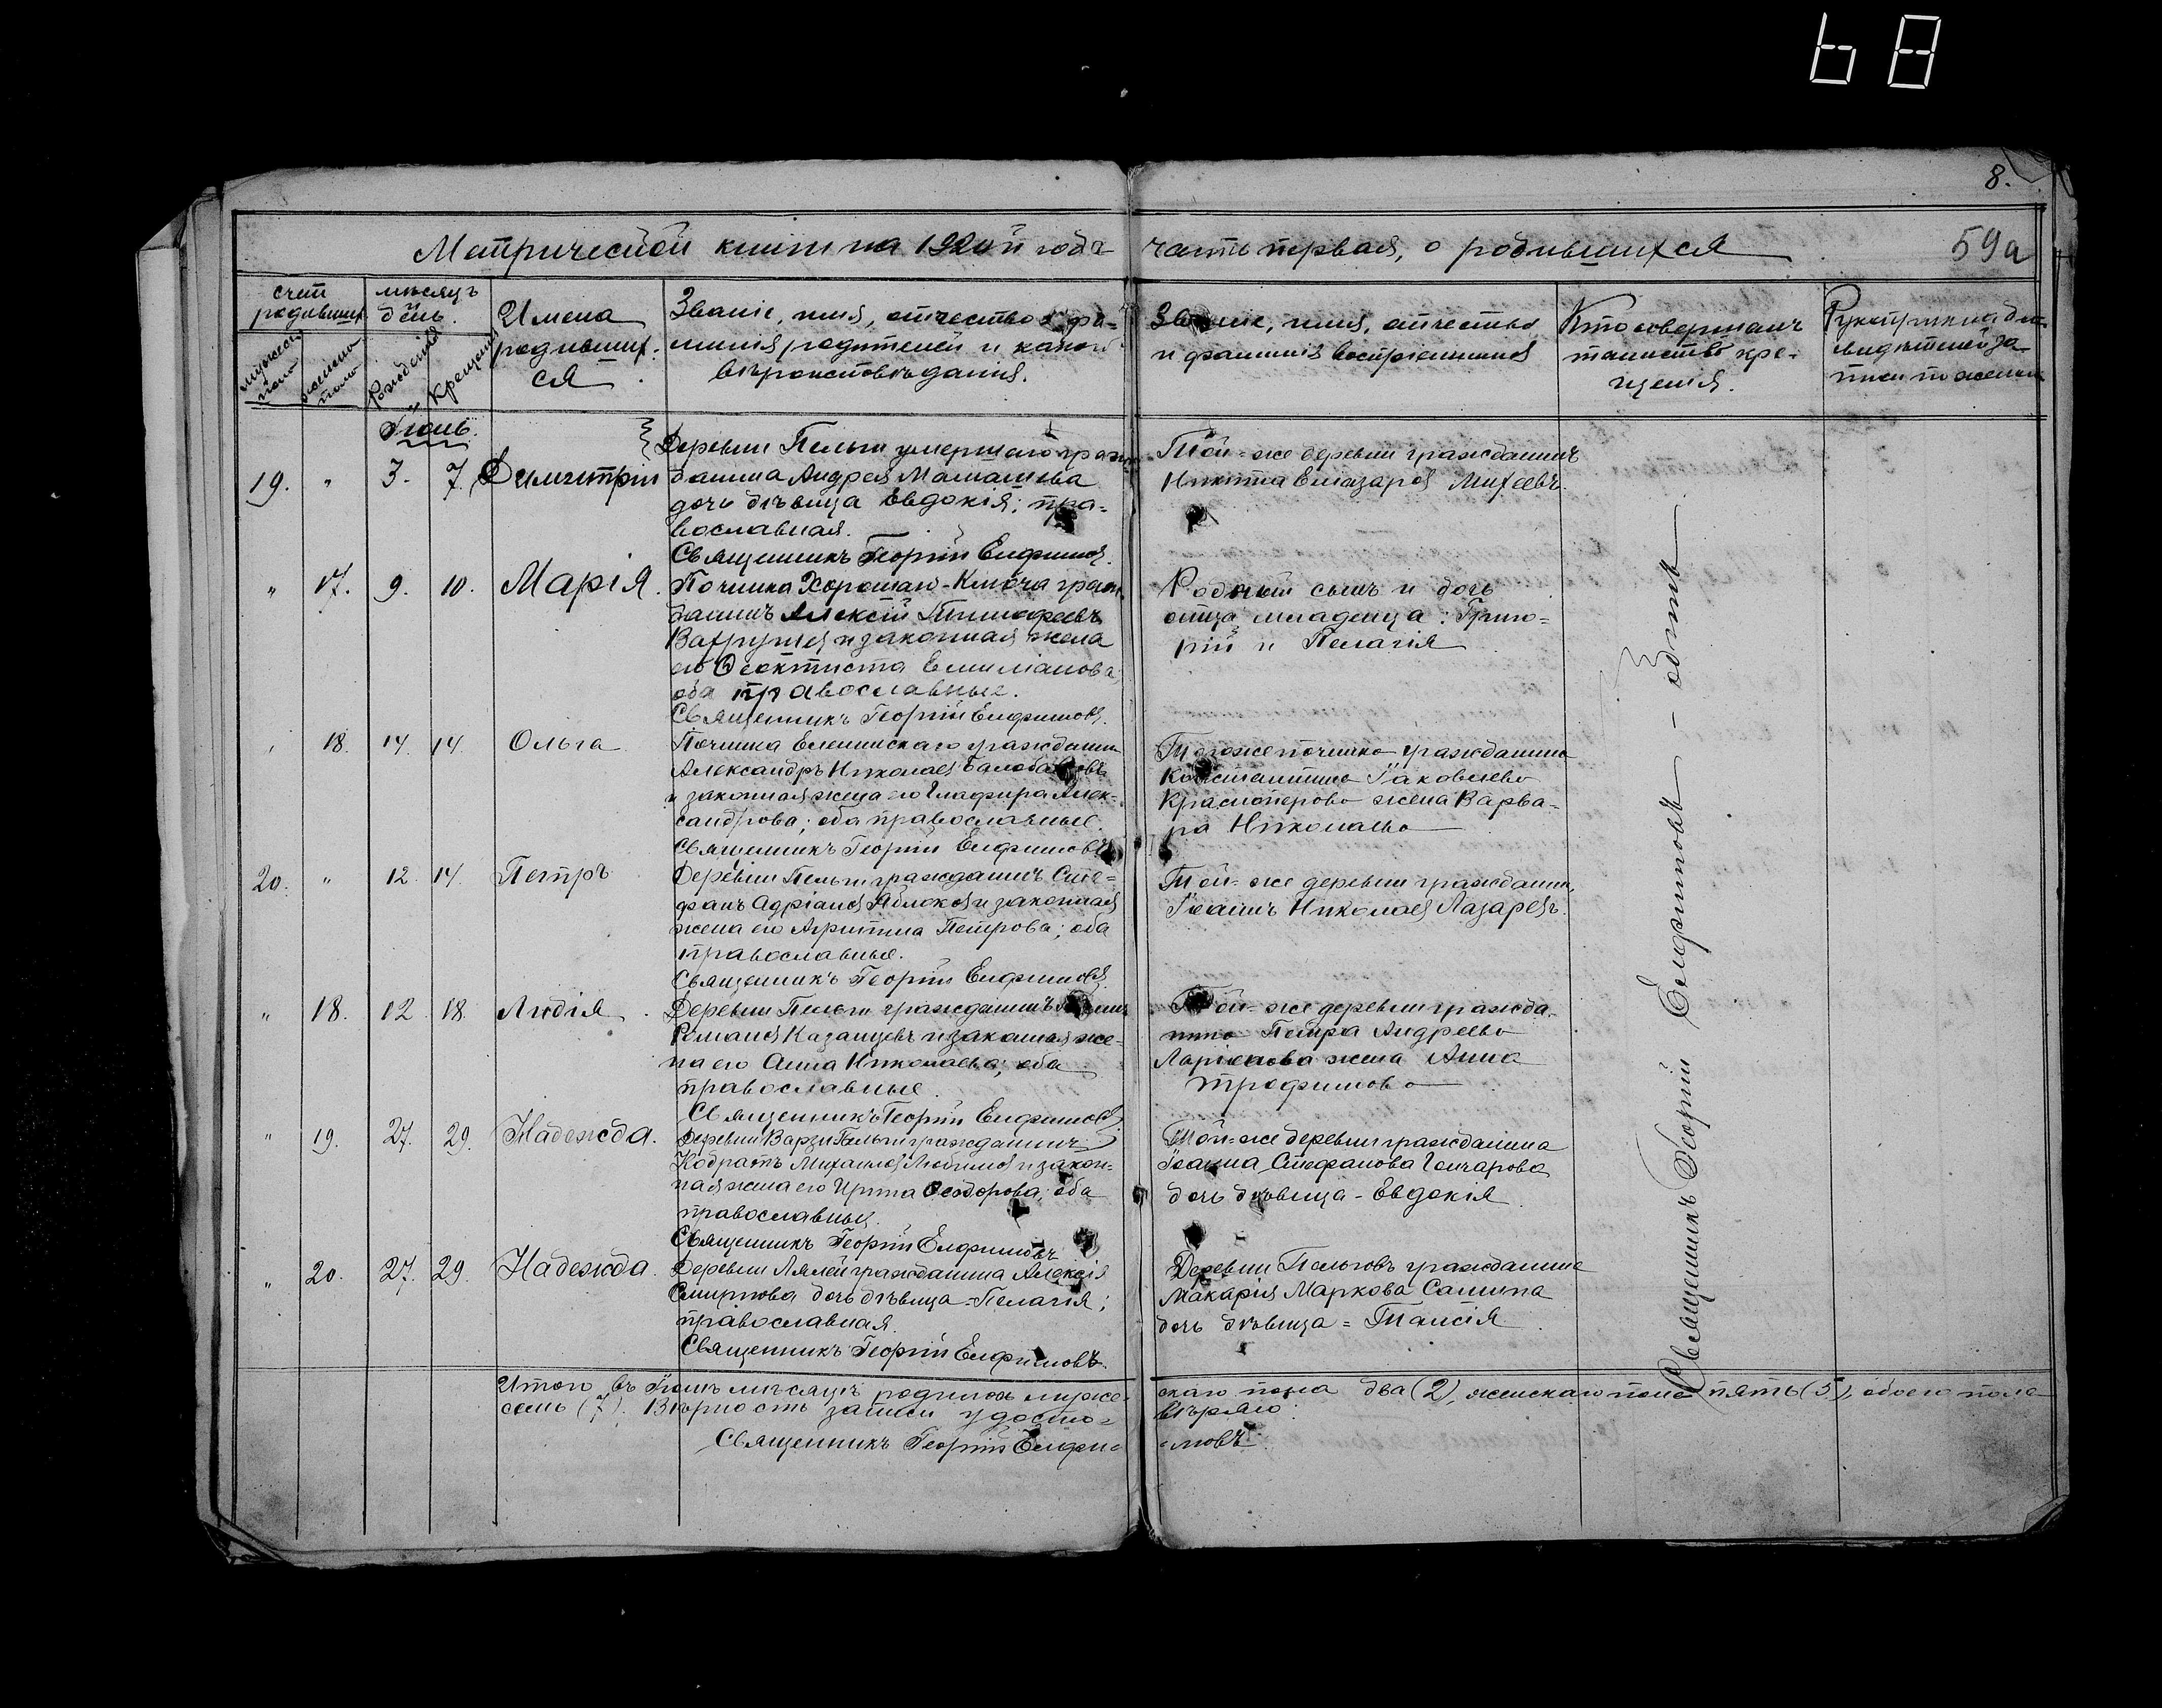 68
8.
Метрической книги на 1920й года часть первая, о родившихся
59а
счет родивших.
мужеск. пола
женска пола
мѣсяцъ и день.
Рожденія
Крещенія
Имена
родивших-
ся
Званіе, имя, отчество и фа-
милія родителей и какого
вѣроисповѣданія.
Званіе, имя, отчество
и фамилія воспріемниковъ
Кто совершалъ
таинство кре-
щенія.
Рукоприкладство
свидѣтелей за-
писи по желанію
Іюнь.
19. " 3. 7. Димитрій
Деревни Пельги умершаго граж-
данина Андрея Мамашева
дочь дѣвица Евдокія; пра-
вославная.
Священникъ Георгій Елфимовъ.
Той-же деревни гражданинъ
Никита Елеазаровъ Михеевъ.
" 17. 9. 10. Марія.
Починка Хорошаго-Ключа граж-
данинъ Алексій Тимофеевъ
Вахрушевъ и законная жена
его Ѳеоктиста Емиліанова;
оба православные.
Священникъ Георгій Елфимовъ.
Родный сынъ и дочь
отца младенца: Григо-
рій и Пелагія
" 18. 14. 14. Ольга
Починка Еленинскаго гражданин
Александръ Николаевъ
и законная жена его Глафира Алек-
сандрова; оба православные.
Священникъ Георгій Елфимовъ
Того же починка гражданина
Константина Іаковлева
Красноперова жена Варва-
ра Николаева
20. " 12. 14. Петръ
Деревни Пельги гражданинъ Сте-
фанъ Адріановъ Яблоковъ и законная
жена его Агриппина Петрова; оба
православные.
Священникъ Георгій Елфимовъ.
Той-же деревни гражданинъ
Іоаннъ Николаевъ Лазаревъ.
" 18. 12. 18. Лидія.
Деревни Пельги гражданинъ
Романовъ Казанцевъ и законная же-
на его Анна Николаева; оба
православные.
Священникъ Георгій Елфимовъ
Той-же деревни гражда-
нина Петра Андреева
Ларіонова жена Анна
Трофимова
" 19. 27. 29. Надежда.
Деревни Варзи Пельги гражданинъ
Кодратъ Михаиловъ Любимовъ и закон-
ная жена его Ирина Ѳеодорова; оба
православные.
Священникъ Георгій Елфимовъ
Той-же деревни гражданина
Іоанна Стефанова Гончарова
дочь дѣвица - Евдокія.
" 20. 27. 29. Надежда.
Деревни Лялей гражданина Алексія
Смирнова дочь дѣвица = Пелагія;
православная.
Священникъ Георгій Елфимовъ.
Деревни Пельговъ гражданина
Макарія Маркова Санина
дочь дѣвица = Таисія.
Священникъ Георгій Елфимовъ - одинъ
Итого въ Іюнѣ мѣсяцѣ родилось муже-
скаго пола два (2), женскаго пола пять (5), обоего пола
семь (7). Вѣрность записи удосто-
вѣряю:
Священникъ Георгій Елфи-
мовъ.